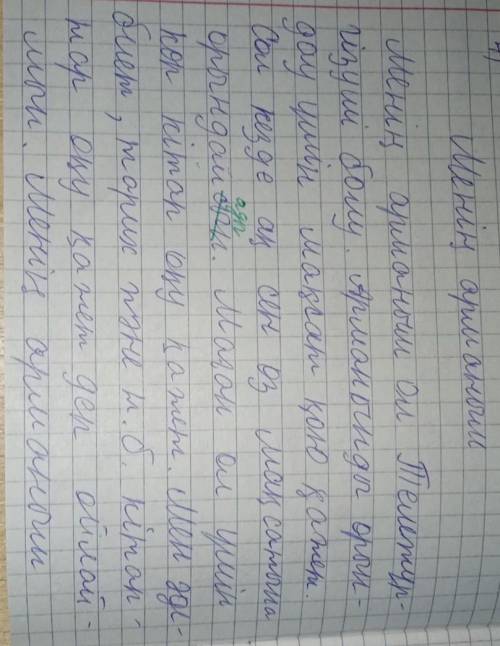 Менің арманым
Менің арманым ол Телетүр-
гізуші болу. Арманыңды орын-
дау үшін мақсат қою қажет.
Сол кезде ақ сен өз мақсатыңа
орындай ад. Маған ол үшін
көп кітап оқу қажет. Мен әде-
биет, тарих және т.б. кітап-
тар оқу қажет деп ойлай-
мын. Менің арманым